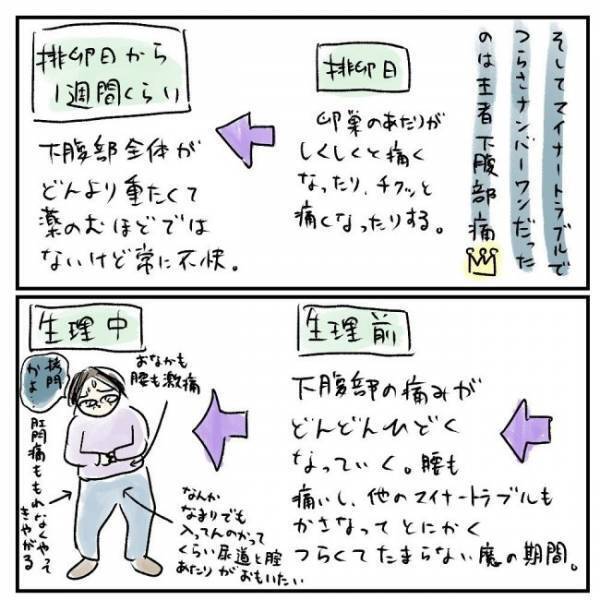 そしてマイナートラブルで
つらさナンバーワンだった
のは王者下腹部痛
排卵日
卵巣のあたりが
しくしくと痛く
なったり、チクッと
痛くなったりする。
排卵日から
1週間くらい
下腹部全体が
どんより重たくて
薬のむほどでは
ないけど常に不快。
生理前
下腹部の痛みが
どんどんひどく
なっていく。腰も
痛いし、他のマイナートラブルも
かさなってとにかく
つらくてたまらない魔の期間。
生理中
おなかも
腰も激痛
拷問
かよ
肛門痛ももれなくやって
きやがる
なんか
なまりでも
入ってんのかって
くらい尿道と膣
あたりがおもいたい